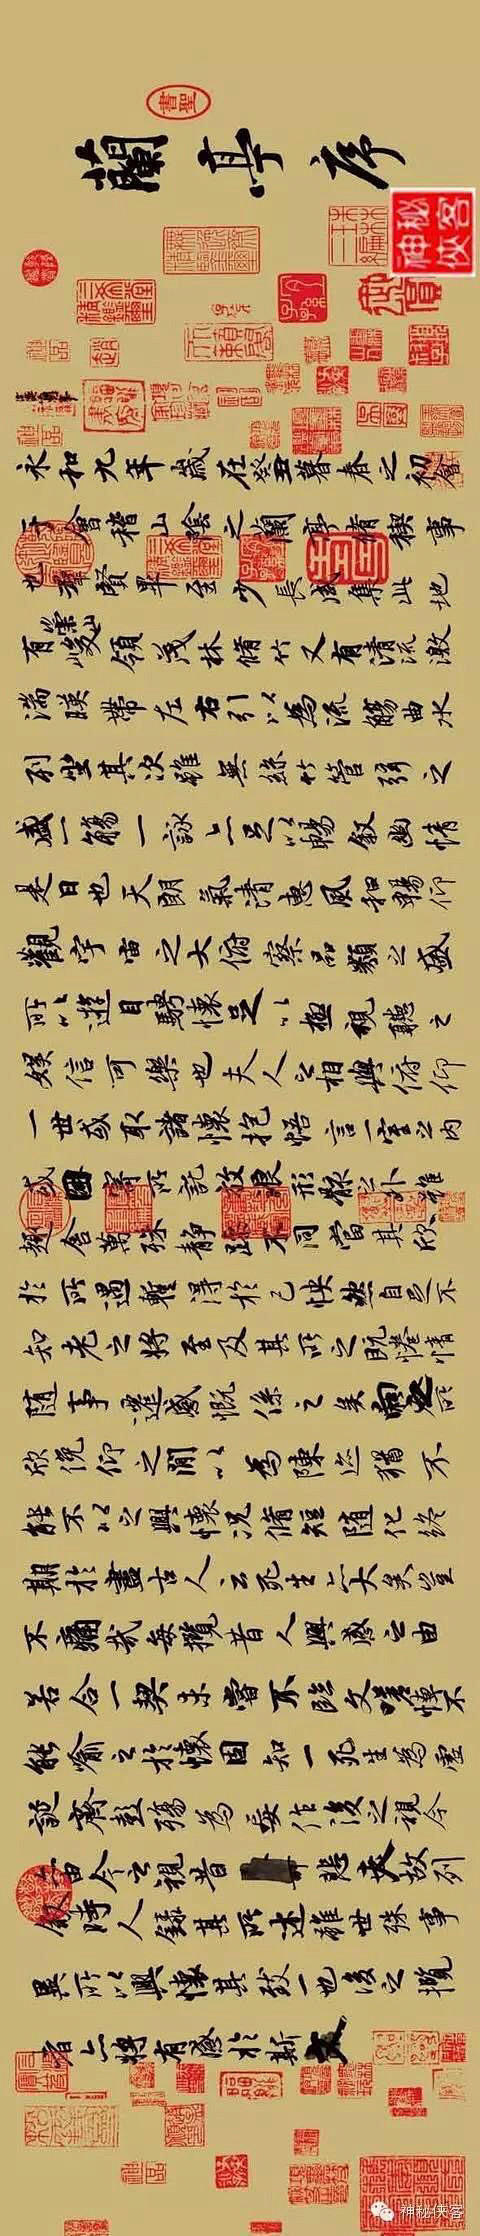 書聖
蘭亭序
神秘俠客
永和九年歲在癸丑暮春之初會
于會稽山陰之蘭亭脩禊事
也群賢畢至少長咸集此地
有崇山峻領茂林脩竹又有清流激
湍暎帶左右引以為流觴曲水
列坐其次雖無絲竹管弦之
盛一觴一詠亦足以暢敘幽情
是日也天朗氣清惠風和暢仰
觀宇宙之大俯察品類之盛
所以遊目騁懷足以極視聽之
娛信可樂也夫人之相與俯仰
一世或取諸懷抱悟言一室之內
或因寄所託放浪形骸之外雖
趣舍萬殊靜躁不同當其欣
於所遇暫得於己怏然自足不
知老之將至及其所之既惓情
隨事遷感慨係之矣向之所
欣俛仰之閒以為陳迹猶不
能不以之興懷況脩短隨化終
期於盡古人云死生亦大矣豈
不痛哉每攬昔人興感之由
若合一契未嘗不臨文嗟悼不
能喻之於懷固知一死生為虛
誕齊彭殤為妄作後之視今
亦由今之視昔悲夫故列
敘時人錄其所述雖世殊事
異所以興懷其致一也後之攬
者亦將有感於斯文
神秘侠客